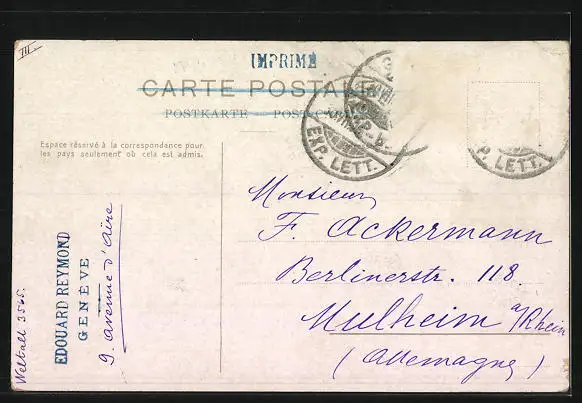 III
IMPRIMÉ
CARTE POSTALE
POSTKARTE
Espace réservé à la correspondance pour
les pays seulement où cela est admis.
EXP. LETT.
P. LETT.
Monsieur
F. Ackermann
Berlinerstr. 118.
Mulheim a/Rhein
(Allemagne)
EDOUARD REYMOND
GENÈVE
9. avenue d'Aïre
Weltall 3565.